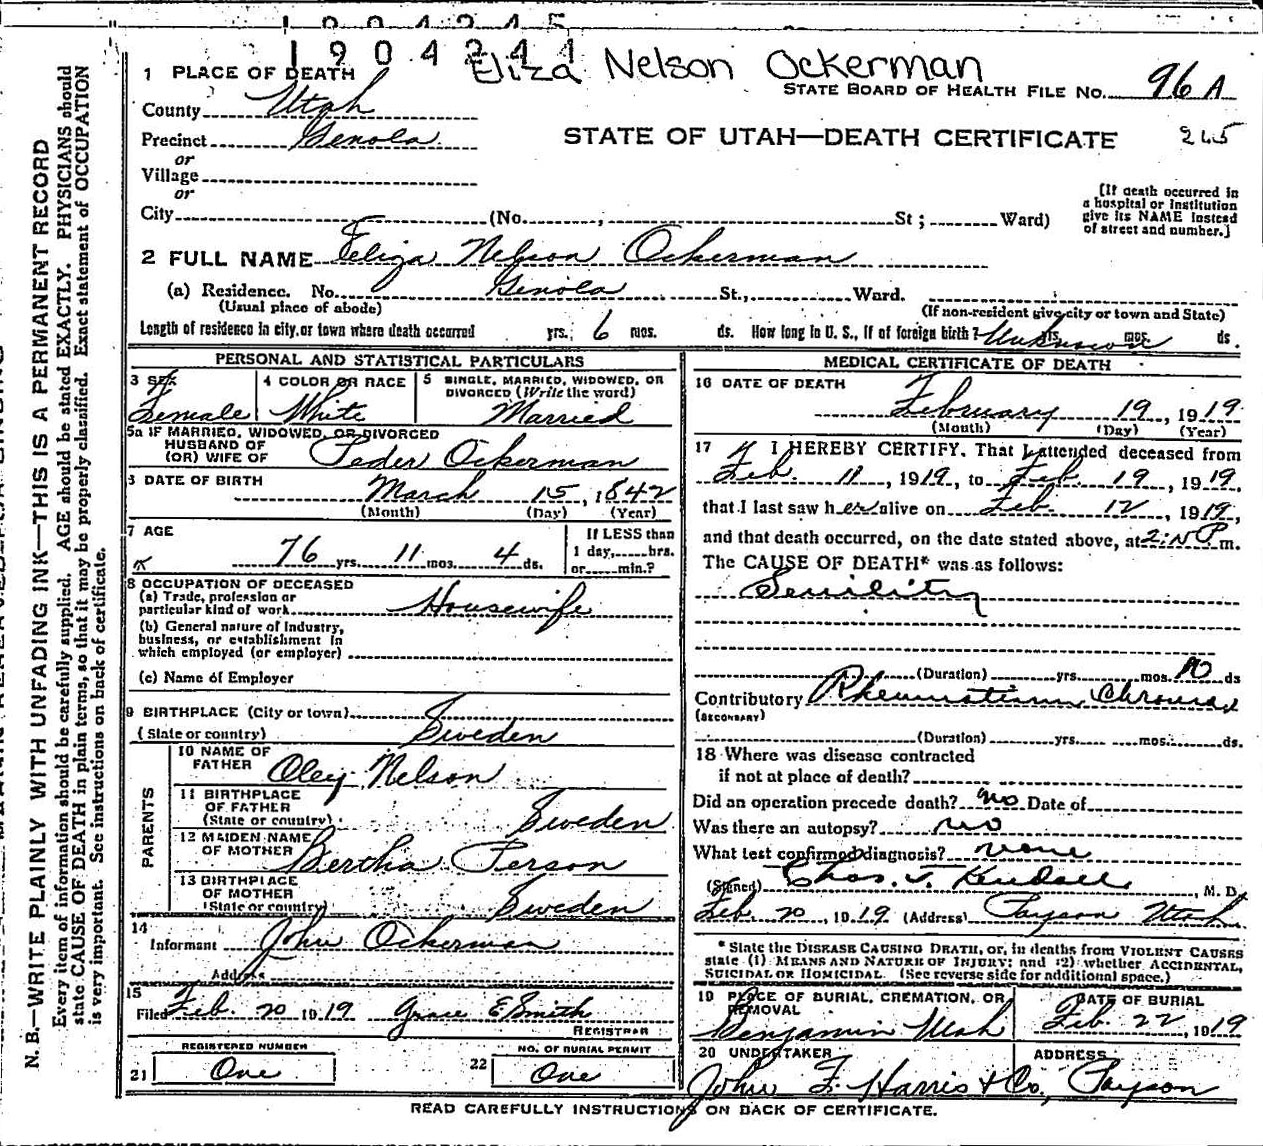 1904245
1904244
Eliza Nelson Ockerman
1 PLACE OF DEATH
STATE BOARD OF HEALTH FILE NO. 96 A
County Utah
Precinct Genola
STATE OF UTAH—DEATH CERTIFICATE 245
or
Village
or
City (No. , St ; Ward)
[If death occurred in
a hospital or institution
give its NAME instead
of street and number.]
2 FULL NAME Eliza Nelson Ockerman
(a) Residence. No. Genola St., Ward.
(Usual place of abode) (If non-resident give city or town and State)
Length of residence in city or town where death occurred yrs. 6 mos. ds. How long in U. S., if of foreign birth? Unknown yrs. mos. ds.
PERSONAL AND STATISTICAL PARTICULARS
3 SEX
Female
4 COLOR OR RACE
White
5 SINGLE, MARRIED, WIDOWED, OR
DIVORCED (Write the word)
Married
5a IF MARRIED, WIDOWED, OR DIVORCED
HUSBAND OF
(OR) WIFE OF Peder Ockerman
6 DATE OF BIRTH
March 15, 1842
(Month) (Day) (Year)
7 AGE
76 yrs. 11 mos. 4 ds.
If LESS than
1 day, hrs.
or min.?
8 OCCUPATION OF DECEASED
(a) Trade, profession or
particular kind of work Housewife
(b) General nature of Industry,
business, or establishment in
which employed (or employer)
(c) Name of Employer
9 BIRTHPLACE (City or town)
(State or country) Sweden
PARENTS
10 NAME OF
FATHER Oley Nelson
11 BIRTHPLACE
OF FATHER
(State or country) Sweden
12 MAIDEN NAME
OF MOTHER Bertha Person
13 BIRTHPLACE
OF MOTHER
(State or country) Sweden
14
Informant John Ockerman
Address
15
Filed Feb. 20 1919 Grace E Smith
REGISTRAR
REGISTERED NUMBER
21 One
NO. OF BURIAL PERMIT
22 One
MEDICAL CERTIFICATE OF DEATH
16 DATE OF DEATH
February 19, 1919
(Month) (Day) (Year)
17 I HEREBY CERTIFY, That I attended deceased from
Feb. 11, 1919, to Feb. 19, 1919,
that I last saw her alive on Feb. 12, 1919,
and that death occurred, on the date stated above, at P m.
The CAUSE OF DEATH* was as follows:
Senility
(Duration) yrs. mos. 10 ds
Contributory Rheumatism Chronic
(SECONDARY)
(Duration) yrs. mos. ds.
18 Where was disease contracted
if not at place of death?
Did an operation precede death? no Date of
Was there an autopsy? no
What test confirmed diagnosis? none
(Signed) Chas. J. Kendall, M. D.
Feb. 20, 1919 (Address) Payson Utah
* State the DISEASE CAUSING DEATH, or, in deaths from VIOLENT CAUSES
state (1) MEANS AND NATURE OF INJURY; and (2) whether ACCIDENTAL,
SUICIDAL OR HOMICIDAL. (See reverse side for additional space.)
19 PLACE OF BURIAL, CREMATION, OR
REMOVAL
Benjamin Utah
DATE OF BURIAL
Feb. 22, 1919
20 UNDERTAKER
John F. Harris & Co.,
ADDRESS
Payson
READ CAREFULLY INSTRUCTIONS ON BACK OF CERTIFICATE.
N. B.—WRITE PLAINLY WITH UNFADING INK—THIS IS A PERMANENT RECORD
Every item of information should be carefully supplied. AGE should be stated EXACTLY. PHYSICIANS should
state CAUSE OF DEATH in plain terms, so that it may be properly classified. Exact statement of OCCUPATION
is very important. See instructions on back of certificate.